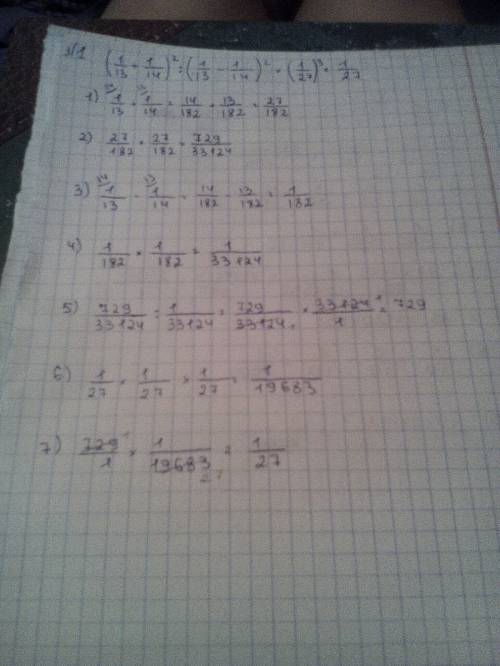 №1 (1/13 + 1/14)² : (1/13 - 1/14)² × (1/27)³ = 1/27
1) 14 1/13 + 13 1/14 = 14/182 + 13/182 = 27/182
2) 27/182 × 27/182 = 729/33124
3) 14 1/13 - 13 1/14 = 14/182 - 13/182 = 1/182
4) 1/182 × 1/182 = 1/33124
5) 729/33124 : 1/33124 = 729/33124 × 33124 1/1 = 729
6) 1/27 × 1/27 × 1/27 = 1/19683
7) 729 1/1 × 1/19683 27 = 1/27